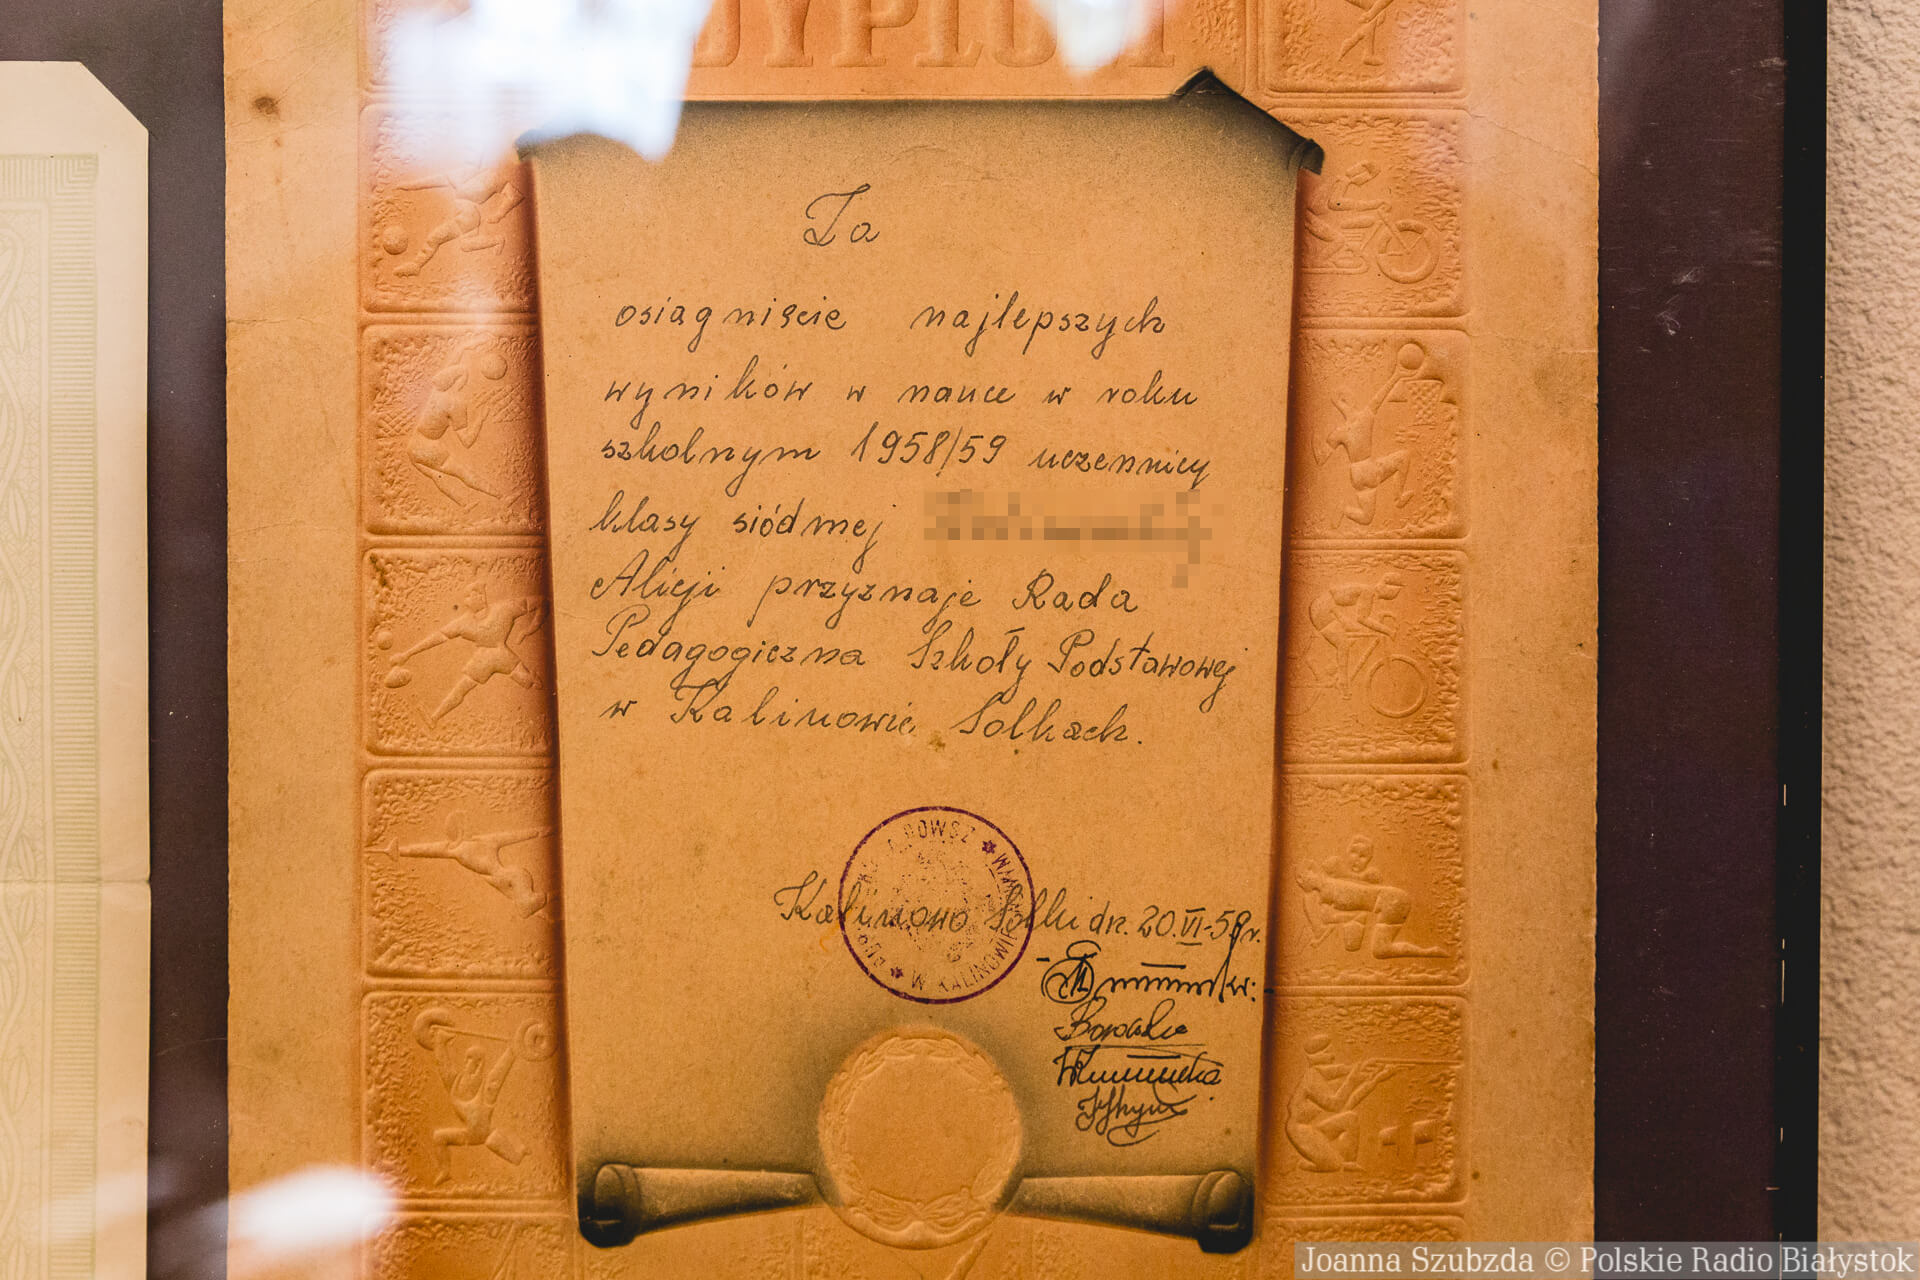 DYPLOM
Za
osiągnięcie najlepszych
wyników w nauce w roku
szkolnym 1958/59 uczennicy
klasy siódmej
Alicji przyznaje Rada
Pedagogiczna Szkoły Podstawowej
w Kalinowie Solkach.
Kalinowo Solki dn. 20.VI-59r.
W KALINOWIE
Joanna Szubzda © Polskie Radio Białystok